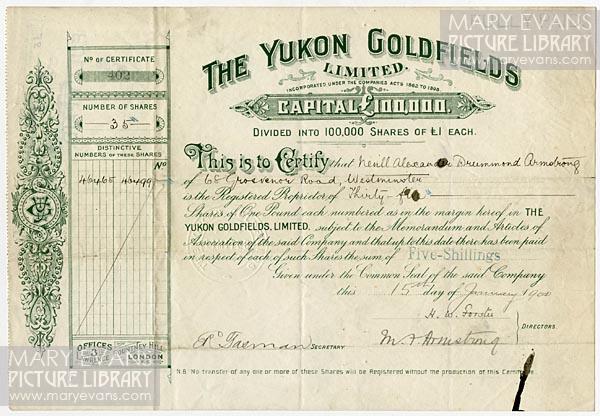 MARY EVANS
PICTURE LIBRARY
THE YUKON GOLDFIELDS
LIMITED.
INCORPORATED UNDER THE COMPANIES ACTS 1862 TO 1898.
CAPITAL £100,000,
DIVIDED INTO 100,000 SHARES OF £1 EACH.
No OF CERTIFICATE
402
NUMBER OF SHARES
35
DISTINCTIVE
NUMBERS OF THESE SHARES
No
46465 46499
This is to Certify that Neill Alexander Drummond Armstrong
of 68 Grosvenor Road, Westminster
is the Registered Proprietor of Thirty-five
Shares of One Pound each numbered as in the margin hereof in THE
YUKON GOLDFIELDS, LIMITED, subject to the Memorandum and Articles of
Association of the said Company and that up to this date there has been paid
in respect of each of such Shares the sum of Five-Shillings
Given under the Common Seal of the said Company
this 15th day of January 1900
H. W. Forster
DIRECTORS.
SECRETARY
Armstrong
OFFICES
3
LAURENCE POUNTNEY HILL
LONDON
N.B. No transfer of any one or more of these Shares will be Registered without the production of this Certificate.
MARY EVANS
PICTURE LIBRARY
www.maryevans.com
MARY EVANS
PICTURE LIBRARY
www.maryevans.com